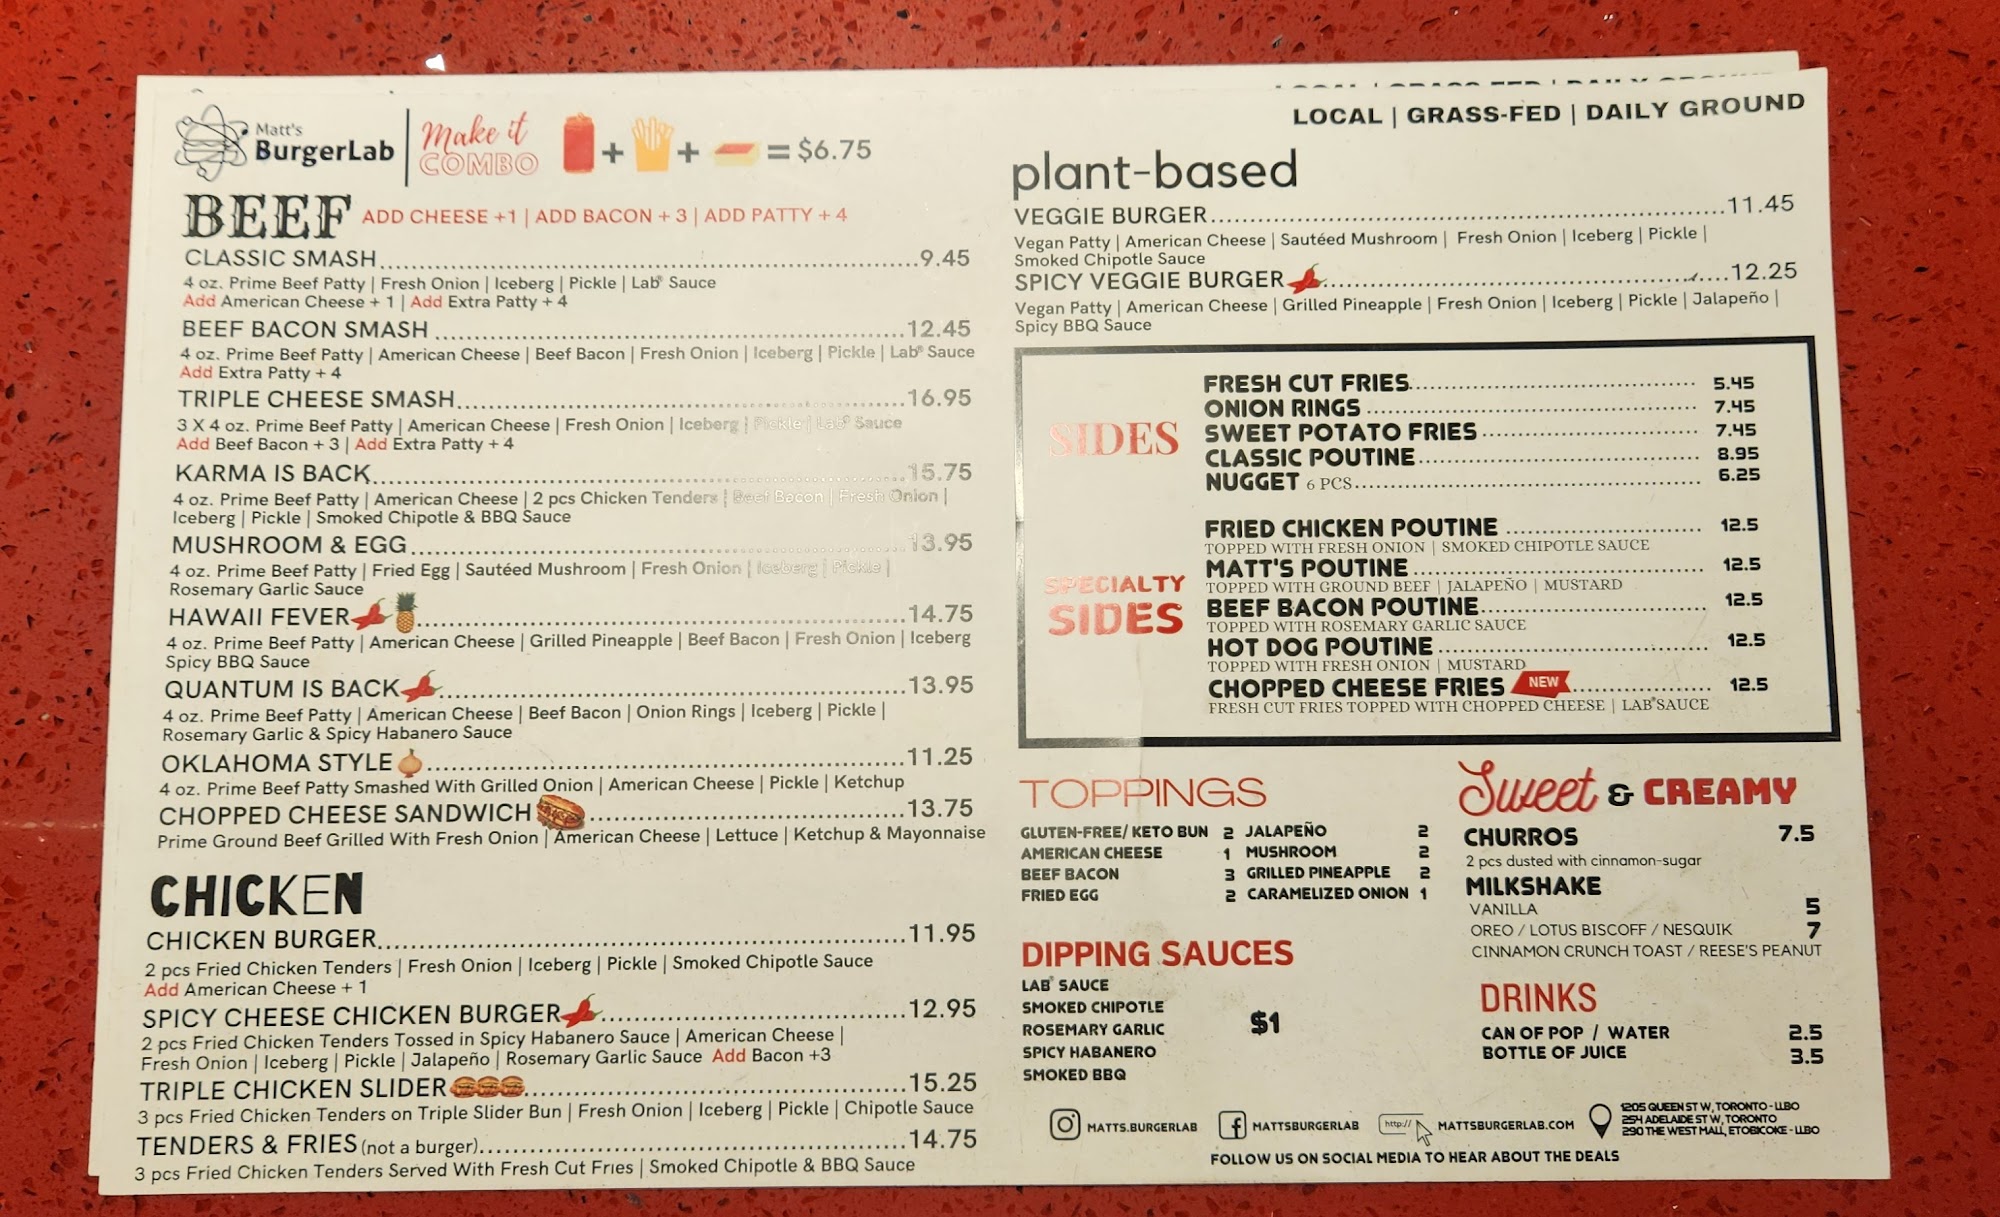 LOCAL | GRASS-FED | DAILY GROUND
Matt's
BurgerLab
Make it
COMBO
+ + = $6.75
BEEF ADD CHEESE +1 | ADD BACON + 3 | ADD PATTY + 4
CLASSIC SMASH 9.45
4 oz. Prime Beef Patty | Fresh Onion | Iceberg | Pickle | Lab® Sauce
Add American Cheese + 1 | Add Extra Patty + 4
BEEF BACON SMASH 12.45
4 oz. Prime Beef Patty | American Cheese | Beef Bacon | Fresh Onion | Iceberg | Pickle | Lab® Sauce
Add Extra Patty + 4
TRIPLE CHEESE SMASH 16.95
3 X 4 oz. Prime Beef Patty | American Cheese | Fresh Onion | Iceberg | Pickle | Lab® Sauce
Add Beef Bacon + 3 | Add Extra Patty + 4
KARMA IS BACK 15.75
4 oz. Prime Beef Patty | American Cheese | 2 pcs Chicken Tenders | Beef Bacon | Fresh Onion |
Iceberg | Pickle | Smoked Chipotle & BBQ Sauce
MUSHROOM & EGG 13.95
4 oz. Prime Beef Patty | Fried Egg | Sautéed Mushroom | Fresh Onion | Iceberg | Pickle |
Rosemary Garlic Sauce
HAWAII FEVER 14.75
4 oz. Prime Beef Patty | American Cheese | Grilled Pineapple | Beef Bacon | Fresh Onion | Iceberg
Spicy BBQ Sauce
QUANTUM IS BACK 13.95
4 oz. Prime Beef Patty | American Cheese | Beef Bacon | Onion Rings | Iceberg | Pickle |
Rosemary Garlic & Spicy Habanero Sauce
OKLAHOMA STYLE 11.25
4 oz. Prime Beef Patty Smashed With Grilled Onion | American Cheese | Pickle | Ketchup
CHOPPED CHEESE SANDWICH 13.75
Prime Ground Beef Grilled With Fresh Onion | American Cheese | Lettuce | Ketchup & Mayonnaise
CHICKEN
CHICKEN BURGER 11.95
2 pcs Fried Chicken Tenders | Fresh Onion | Iceberg | Pickle | Smoked Chipotle Sauce
Add American Cheese + 1
SPICY CHEESE CHICKEN BURGER 12.95
2 pcs Fried Chicken Tenders Tossed in Spicy Habanero Sauce | American Cheese |
Fresh Onion | Iceberg | Pickle | Jalapeño | Rosemary Garlic Sauce Add Bacon +3
TRIPLE CHICKEN SLIDER 15.25
3 pcs Fried Chicken Tenders on Triple Slider Bun | Fresh Onion | Iceberg | Pickle | Chipotle Sauce
TENDERS & FRIES (not a burger) 14.75
3 pcs Fried Chicken Tenders Served With Fresh Cut Fries | Smoked Chipotle & BBQ Sauce
LOCAL | GRASS-FED | DAILY GROUND
plant-based
VEGGIE BURGER 11.45
Vegan Patty | American Cheese | Sautéed Mushroom | Fresh Onion | Iceberg | Pickle |
Smoked Chipotle Sauce
SPICY VEGGIE BURGER 12.25
Vegan Patty | American Cheese | Grilled Pineapple | Fresh Onion | Iceberg | Pickle | Jalapeño |
Spicy BBQ Sauce
SIDES
FRESH CUT FRIES 5.45
ONION RINGS 7.45
SWEET POTATO FRIES 7.45
CLASSIC POUTINE 8.95
NUGGET 6 PCS 6.25
SPECIALTY
SIDES
FRIED CHICKEN POUTINE 12.5
TOPPED WITH FRESH ONION | SMOKED CHIPOTLE SAUCE
MATT'S POUTINE 12.5
TOPPED WITH GROUND BEEF | JALAPEÑO | MUSTARD
BEEF BACON POUTINE 12.5
TOPPED WITH ROSEMARY GARLIC SAUCE
HOT DOG POUTINE 12.5
TOPPED WITH FRESH ONION | MUSTARD
CHOPPED CHEESE FRIES NEW 12.5
FRESH CUT FRIES TOPPED WITH CHOPPED CHEESE | LAB® SAUCE
TOPPINGS
GLUTEN-FREE/ KETO BUN 2 JALAPEÑO 2
AMERICAN CHEESE 1 MUSHROOM 2
BEEF BACON 3 GRILLED PINEAPPLE 2
FRIED EGG 2 CARAMELIZED ONION 1
DIPPING SAUCES
LAB® SAUCE
SMOKED CHIPOTLE
ROSEMARY GARLIC $1
SPICY HABANERO
SMOKED BBQ
Sweet & CREAMY
CHURROS 7.5
2 pcs dusted with cinnamon-sugar
MILKSHAKE
VANILLA 5
OREO / LOTUS BISCOFF / NESQUIK 7
CINNAMON CRUNCH TOAST / REESE'S PEANUT
DRINKS
CAN OF POP / WATER 2.5
BOTTLE OF JUICE 3.5
MATTS.BURGERLAB MATTSBURGERLAB http:// MATTSBURGERLAB.COM
1205 QUEEN ST W, TORONTO - LLBO
254 ADELAIDE ST W, TORONTO
290 THE WEST MALL, ETOBICOKE - LLBO
FOLLOW US ON SOCIAL MEDIA TO HEAR ABOUT THE DEALS